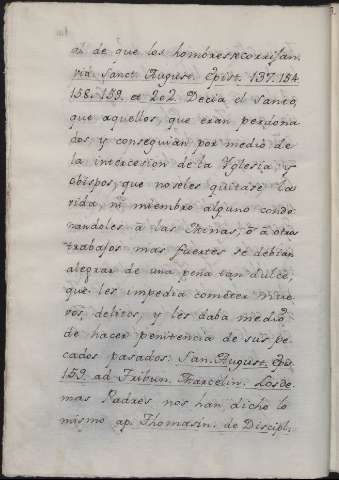 ai de que los hombres se corrijan.
vid. Sanct. August. Epist. 137. 154.
158. 159. et 202. Decia el Santo,
que aquellos, que eran perdona
dos, y conseguian por medio de
la intercesion de la Yglesia, y
Obispos, que no seles quitase la
vida, ni miembro alguno conde
nandoles à las Minas, ò à otros
trabajos mas fuertes se debian
alegrar de una pena tan dulce,
que les impedia cometer nue
vos delitos, y les daba medio
de hacer penitencia de sus pe
cados pasados. San. August. Epis.
159. ad Tribun. Marcelin. Los de
mas Padres nos han dicho lo
mismo ap. Thomasin. de Discipl.